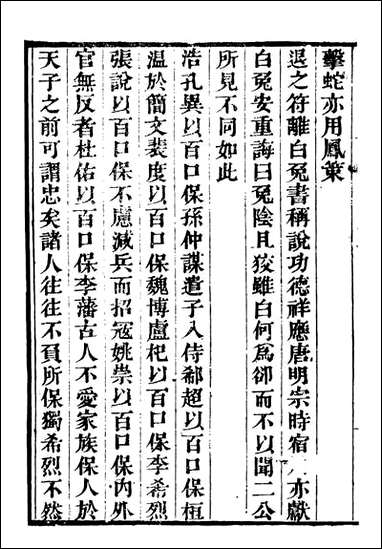 擊蛇亦用鳳策
退之符離白兔書稱說功德祥應唐明宗時宿人亦獻
白兔安重誨曰兔陰且狡雖白何爲卻而不以聞二公
所見不同如此
浩孔異以百口保孫仲謀遣子入侍郗超以百口保桓
温於簡文裴度以百口保魏博盧杞以百口保李希烈
張說以百口保不慮減兵而招寇姚崇以百口保內外
官無反者杜佑以百口保李藩古人不愛家族保人於
天子之前可謂忠矣諸人往往不負所保獨希烈不然